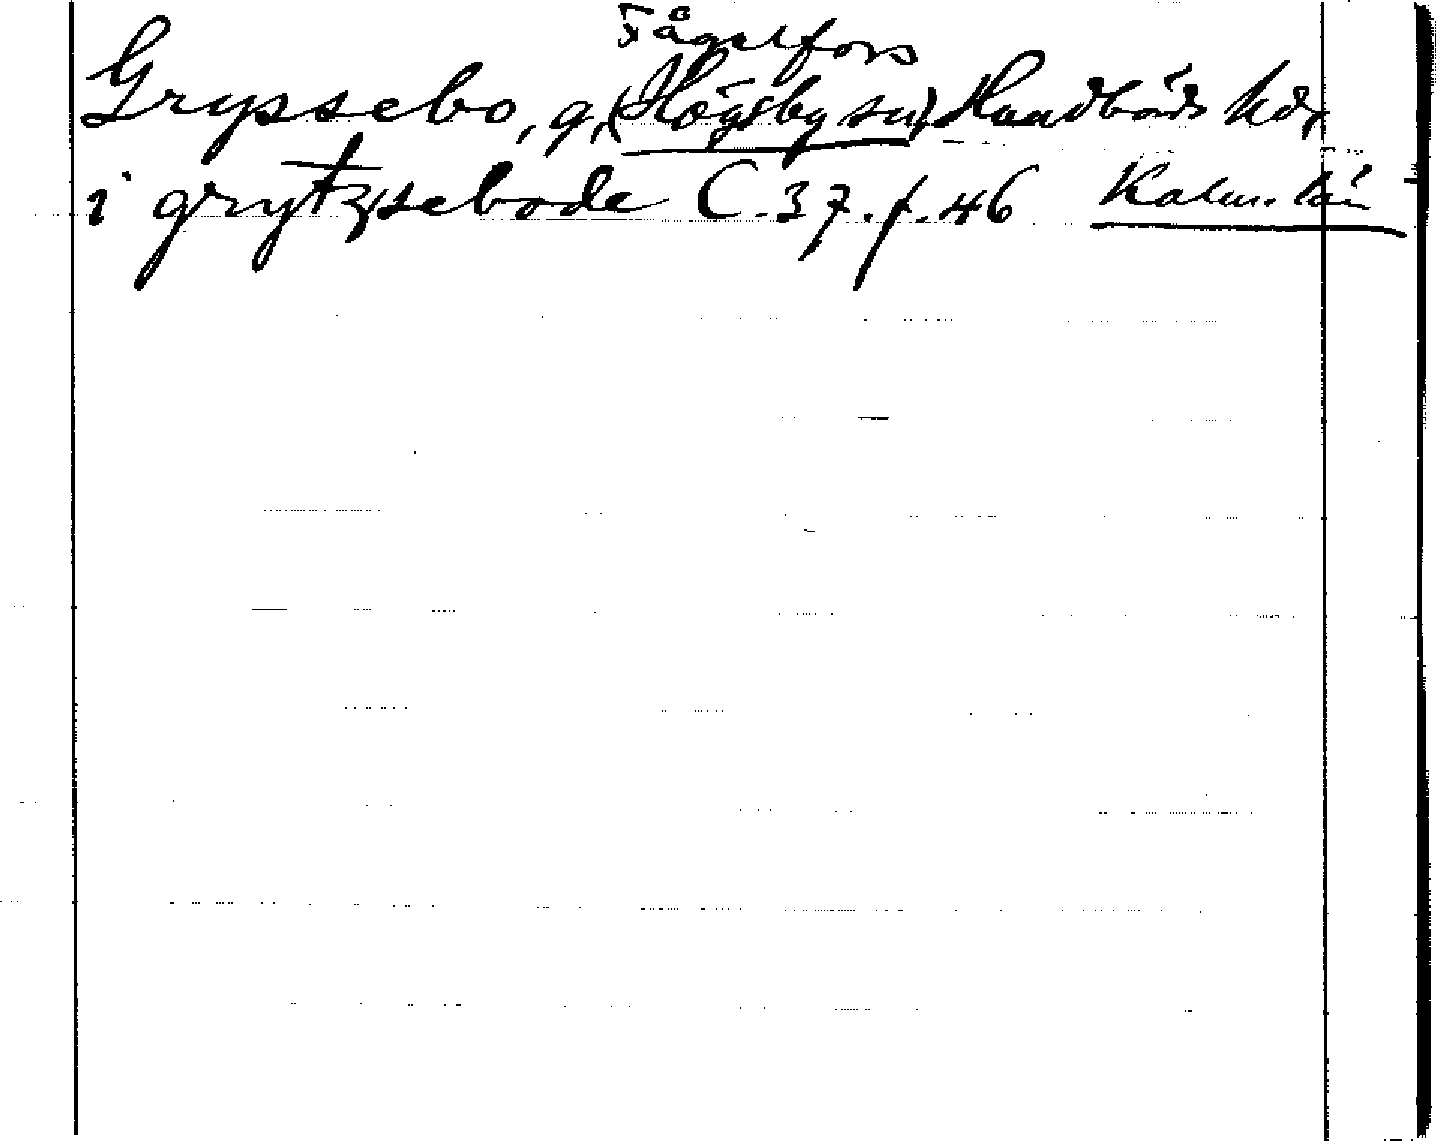 Fågelfors
Gryssebo, g, (Högsby sn) Handbörds hd,
i grytzsebode C. 37. f. 46 Kalm. län